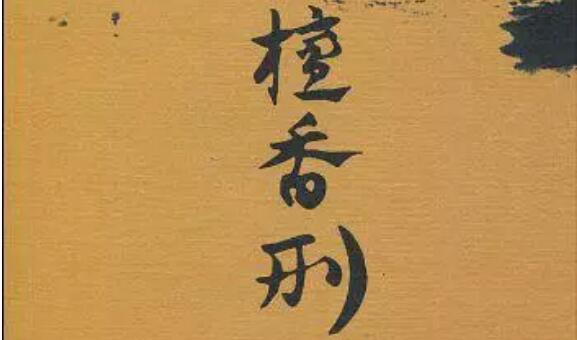 檀香刑